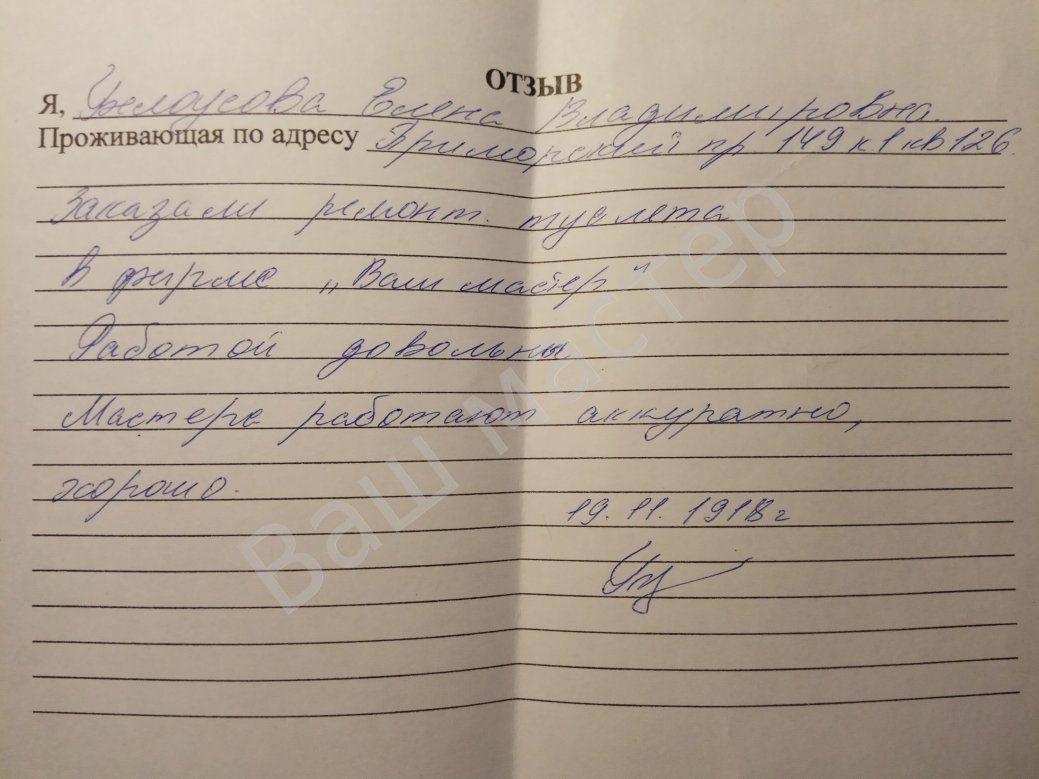 ОТЗЫВ
Я, Белоусова Елена Владимировна.
Проживающая по адресу Приморский пр 149 к1 кв 126.
Заказали ремонт. туалета
в фирме „Ваш мастер"
Работой довольны.
Мастера работают аккуратно,
хорошо.
19.11.1918 г
Ваш мастер